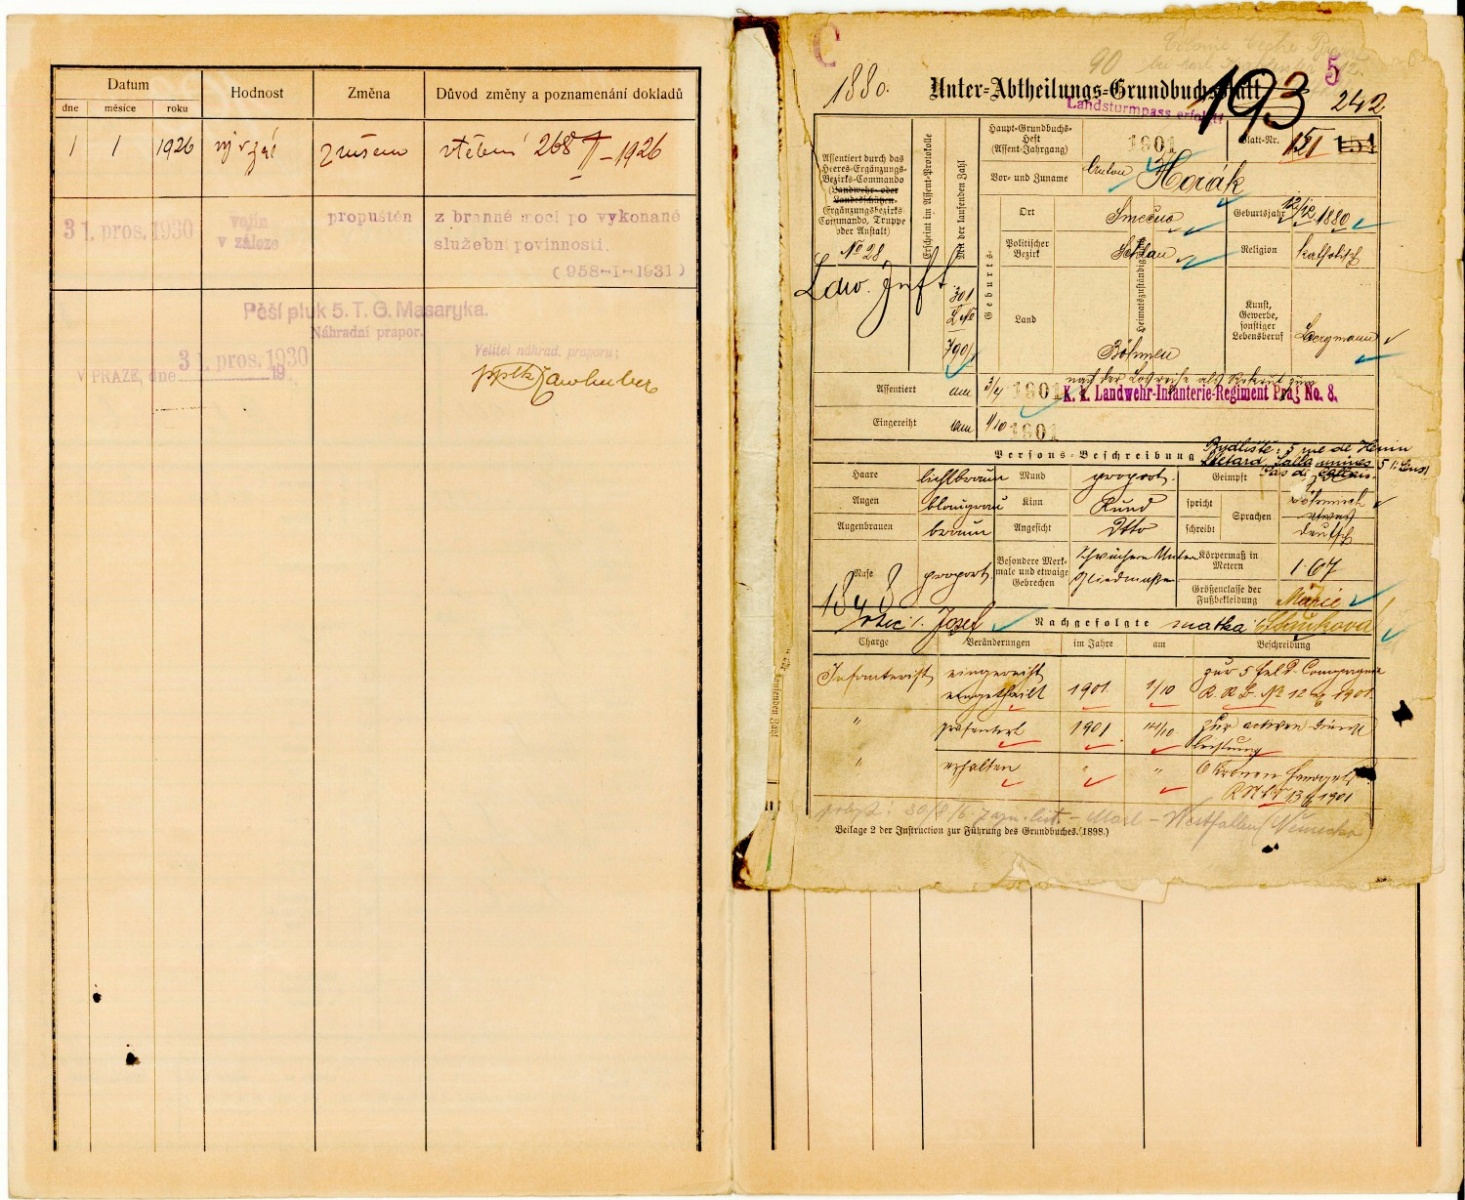 Datum
Hodnost
Změna
Důvod změny a poznamenání dokladů
dne
měsíce
roku
1 1 1926
zrušeno
268 II-1926
31. pros. 1930
vojín
v záloze
propuštěn
z branné moci po vykonané
služební povinnosti.
(958-I-1931)
Pěší pluk 5. T. G. Masaryka.
Náhradní prapor.
V PRAZE, dne 31. pros. 1930
19
Velitel náhrad. praporu:
C
1880.
90
5
Unter-Abtheilungs-Grundbuchsblatt
193
242
Landsturmpass erfolgt
Assentiert durch das
Heeres-Ergänzungs-
Bezirks-Commando
(Landwehr- oder
Landesschützen-
Ergänzungsbezirks-
Commando, Truppe
oder Anstalt)
No 28
Erscheint im Assent-Protokolle
Mit der laufenden Zahl
Haupt-Grundbuchs-
Heft
(Assent-Jahrgang)
1901
Blatt-Nr.
151
Vor- und Zuname
Anton Horák
Geburts-
Ort
Smečno
Geburtsjahr
12/12 1880
Politischer
Bezirk
Schlan
Heimatszuständigkeit
Religion
katholisch
Land
Böhmen
Kunst,
Gewerbe,
sonstiger
Lebensberuf
Bergmann
301
790
Assentiert am
3/4 1901
nach der Losreihe als Rekrut zum
K. k. Landwehr-Infanterie-Regiment Prag No. 8.
Eingereiht am
1/10 1901
Persons-Beschreibung
Bydliště: 5 rue de
Haare
lichtbraun
Mund
proport.
Geimpft
Augen
blaugrau
Kinn
Rund
spricht
Sprachen
böhmisch
etwas
Augenbrauen
braun
Angesicht
Dtto
schreibt
deutsch
Nase
proport.
Besondere Merk-
male und etwaige
Gebrechen
Schwächere Unter
Gliedmaßen
Körpermaß in
Metern
1·67
Größenclasse der
Fußbekleidung
1848
Marie
otec: Josef
Nachgefolgte
matka
Charge
Veränderungen
im Jahre
am
Beschreibung
Infanterist
eingereiht
eingetheilt
1901
1/10
zur 5 Feld-Compagnie
No 12 1901
"
präsentirt
1901
zur activen Dienst
leistung
"
erhalten
"
"
6 Kronen
1901
Westfallen (Německo)
Beilage 2 der Instruction zur Führung des Grundbuches. (1898.)